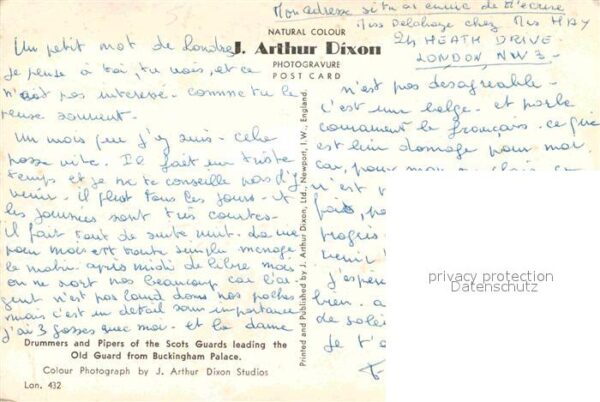 Mon adresse si tu as envie de m'écrire
Miss Delahaye chez Mrs HAY
24 HEATH DRIVE
LONDON, NW3-
NATURAL COLOUR
J. Arthur Dixon
PHOTOGRAVURE
POST CARD
Un petit mot de Londres
je pense à toi, tu vois, et ce
n'est pas interessé. comme tu le
penses souvent.
Un mois que j'y suis - cela
passe vite. Il fait un triste
temps et je ne te conseille pas d'y
venir. il pleut tous les jours - et
les journées sont très courtes.
il fait tout de suite nuit.
pour moi est toute simple menage
le matin. après midi de libre mais
on ne sort pas beaucoup car l'ar-
gent n'est pas lourd dans nos poches
mais c'est un detail sans importance
j'ai 3 gosses avec moi - et la dame
n'est pas desagreable -
c'est une belge - et parle
couramment le français - ce qui
est bien domage pour moi
car, pour mon
n'est
progrès
venir
j'espère
bien - a
de soleil
Je t'
Printed and Published by J. Arthur Dixon, Ltd., Newport, I.W., England.
privacy protection
Datenschutz
Drummers and Pipers of the Scots Guards leading the
Old Guard from Buckingham Palace.
Colour Photograph by J. Arthur Dixon Studios
Lon. 432